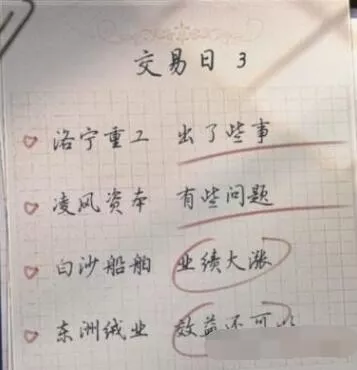 交易日 3
洛宁重工 出了些事
凌风资本 有些问题
白沙船舶 业绩大涨
东洲绒业 效益还可以